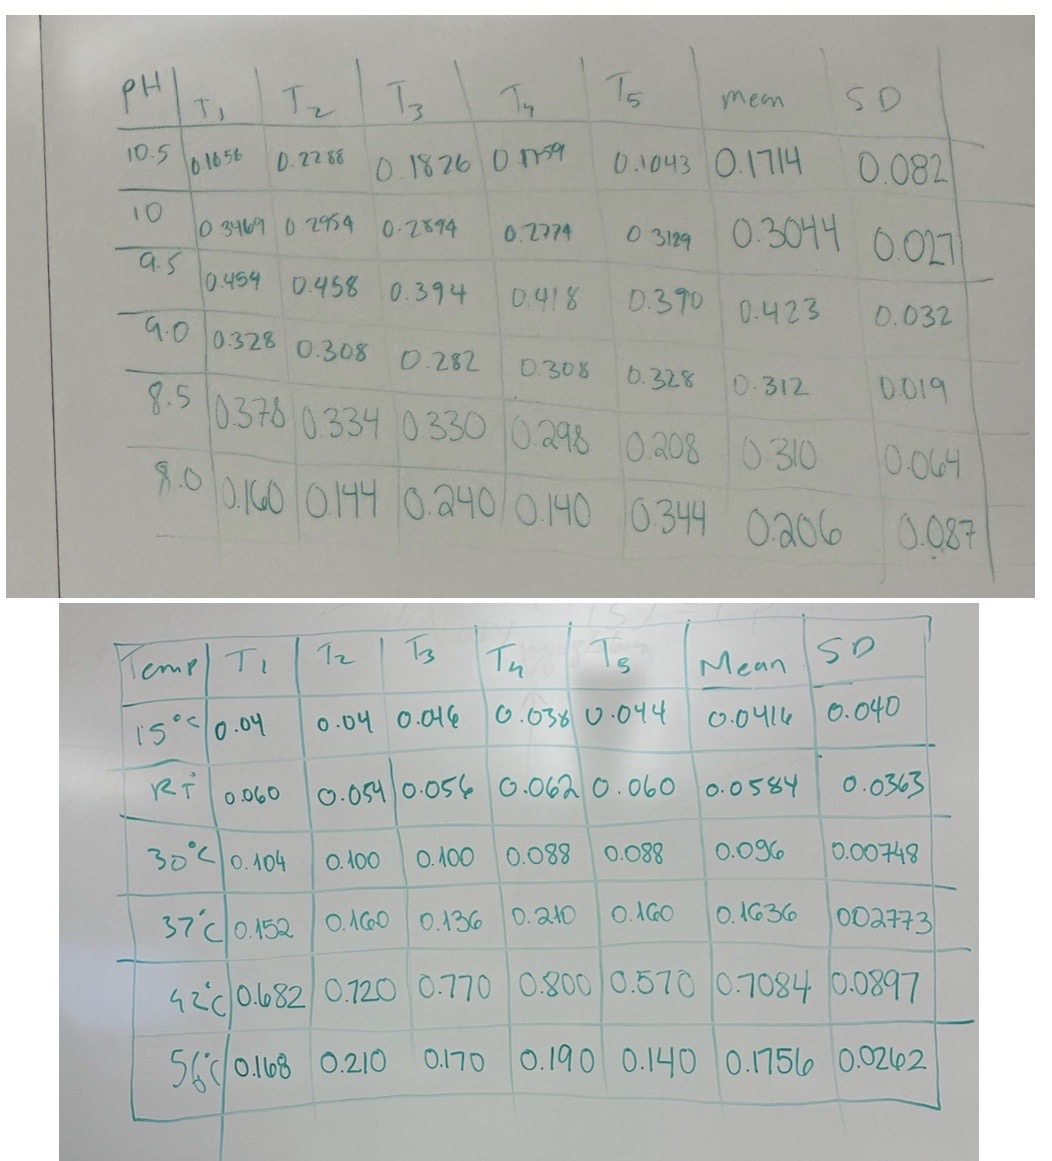 pH T1 T2 T3 T4 T5 mean SD
10.5 0.1656 0.2288 0.1826 0.1759 0.1043 0.1714 0.082
10 0.3469 0.2954 0.2894 0.2774 0.3129 0.3044 0.027
9.5 0.454 0.458 0.394 0.418 0.390 0.423 0.032
9.0 0.328 0.308 0.282 0.308 0.328 0.312 0.019
8.5 0.378 0.334 0.330 0.298 0.208 0.310 0.064
8.0 0.160 0.144 0.240 0.140 0.344 0.206 0.087
Temp T1 T2 T3 T4 T5 Mean SD
15°C 0.04 0.04 0.046 0.038 0.044 0.0416 0.040
RT 0.060 0.054 0.056 0.062 0.060 0.0584 0.0363
30°C 0.104 0.100 0.100 0.088 0.088 0.096 0.00748
37°C 0.152 0.160 0.136 0.210 0.160 0.1636 002773
42°C 0.682 0.720 0.770 0.800 0.570 0.7084 0.0897
56°C 0.168 0.210 0.170 0.190 0.140 0.1756 0.0262